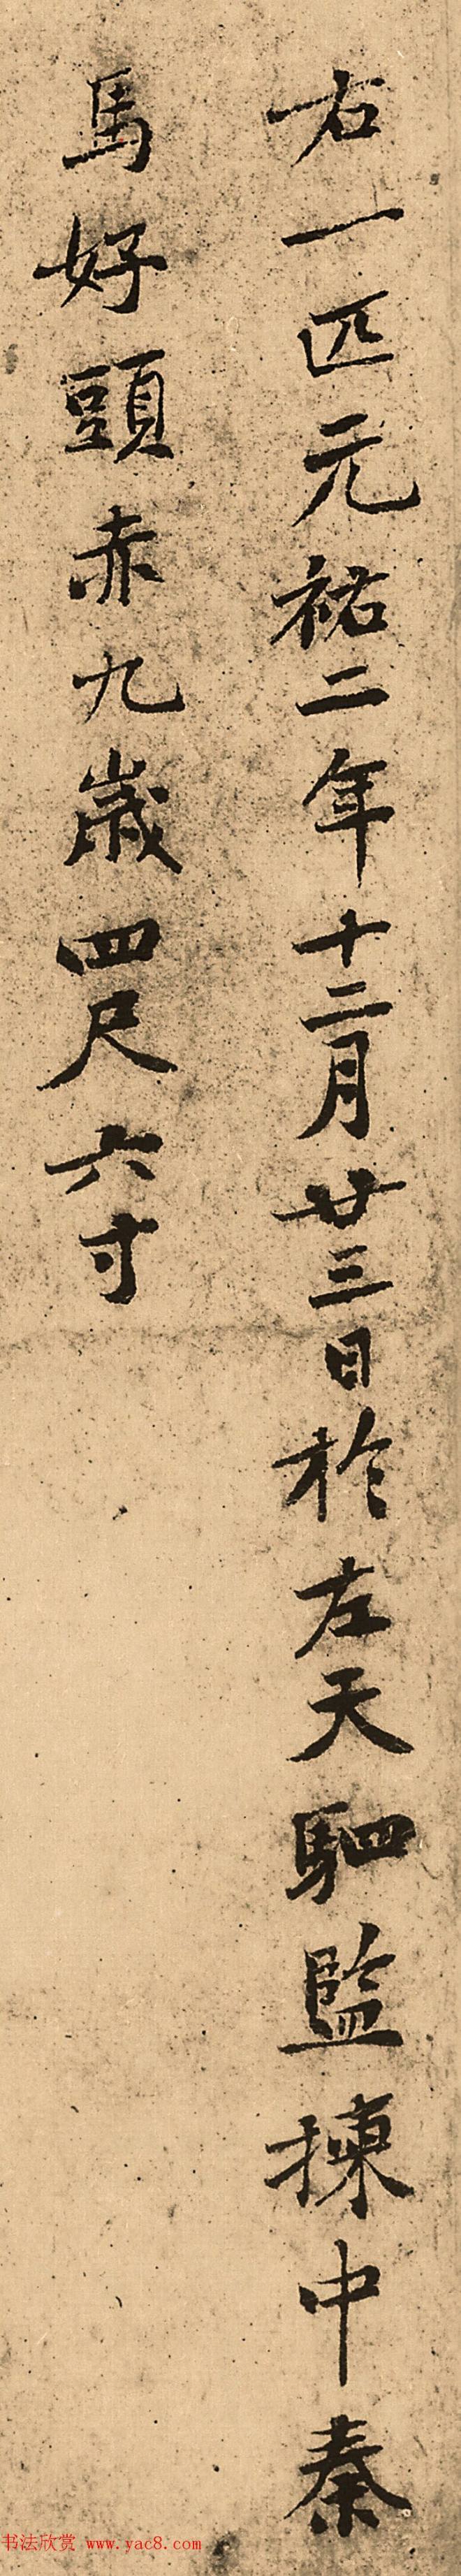 右一匹元祐二年十二月廿三日於左天駟監揀中秦
馬好頭赤九歲四尺六寸
书法欣赏 www.yac8.com